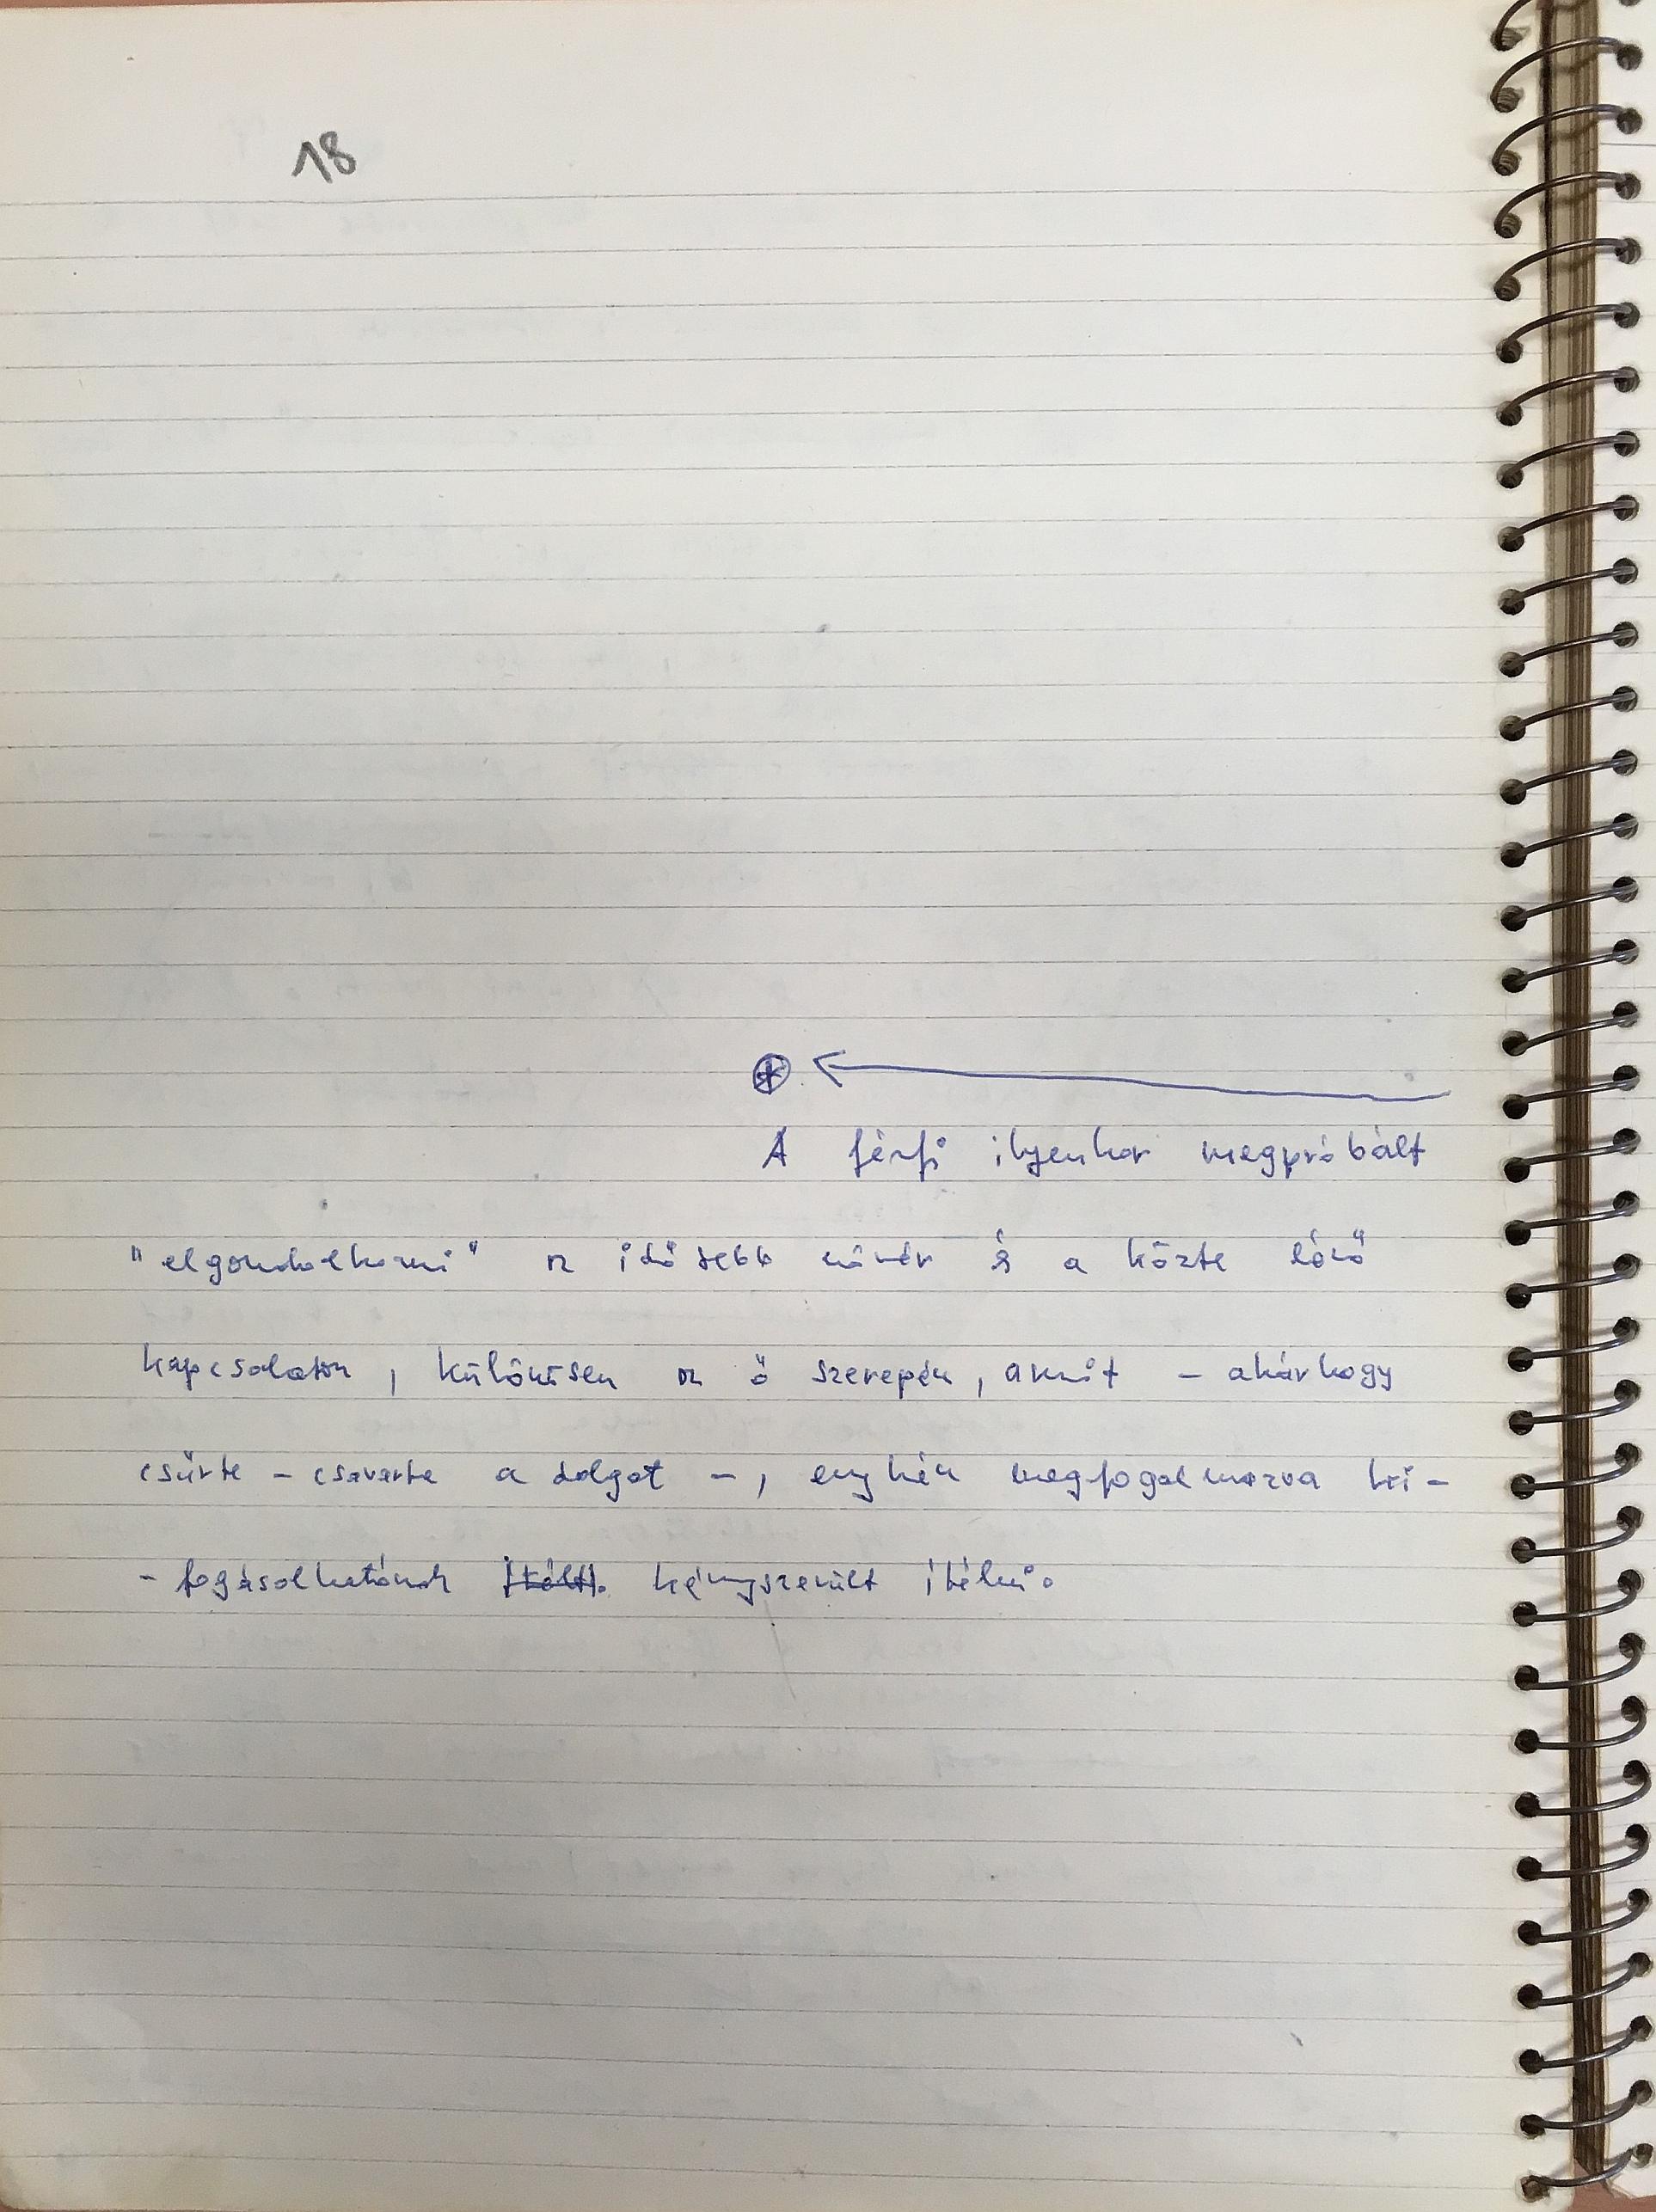 18
⊛ ←
A férfi ilyenkor megpróbált
"elgondolkozni" az idősebb nővér és a közte lévő
kapcsolaton, különösen az ő szerepén, amit – akárhogy
csűrte – csavarta a dolgot –, enyhén megfogalmazva ki-
- fogásolhatónak ítélt. kényszerült ítélni.